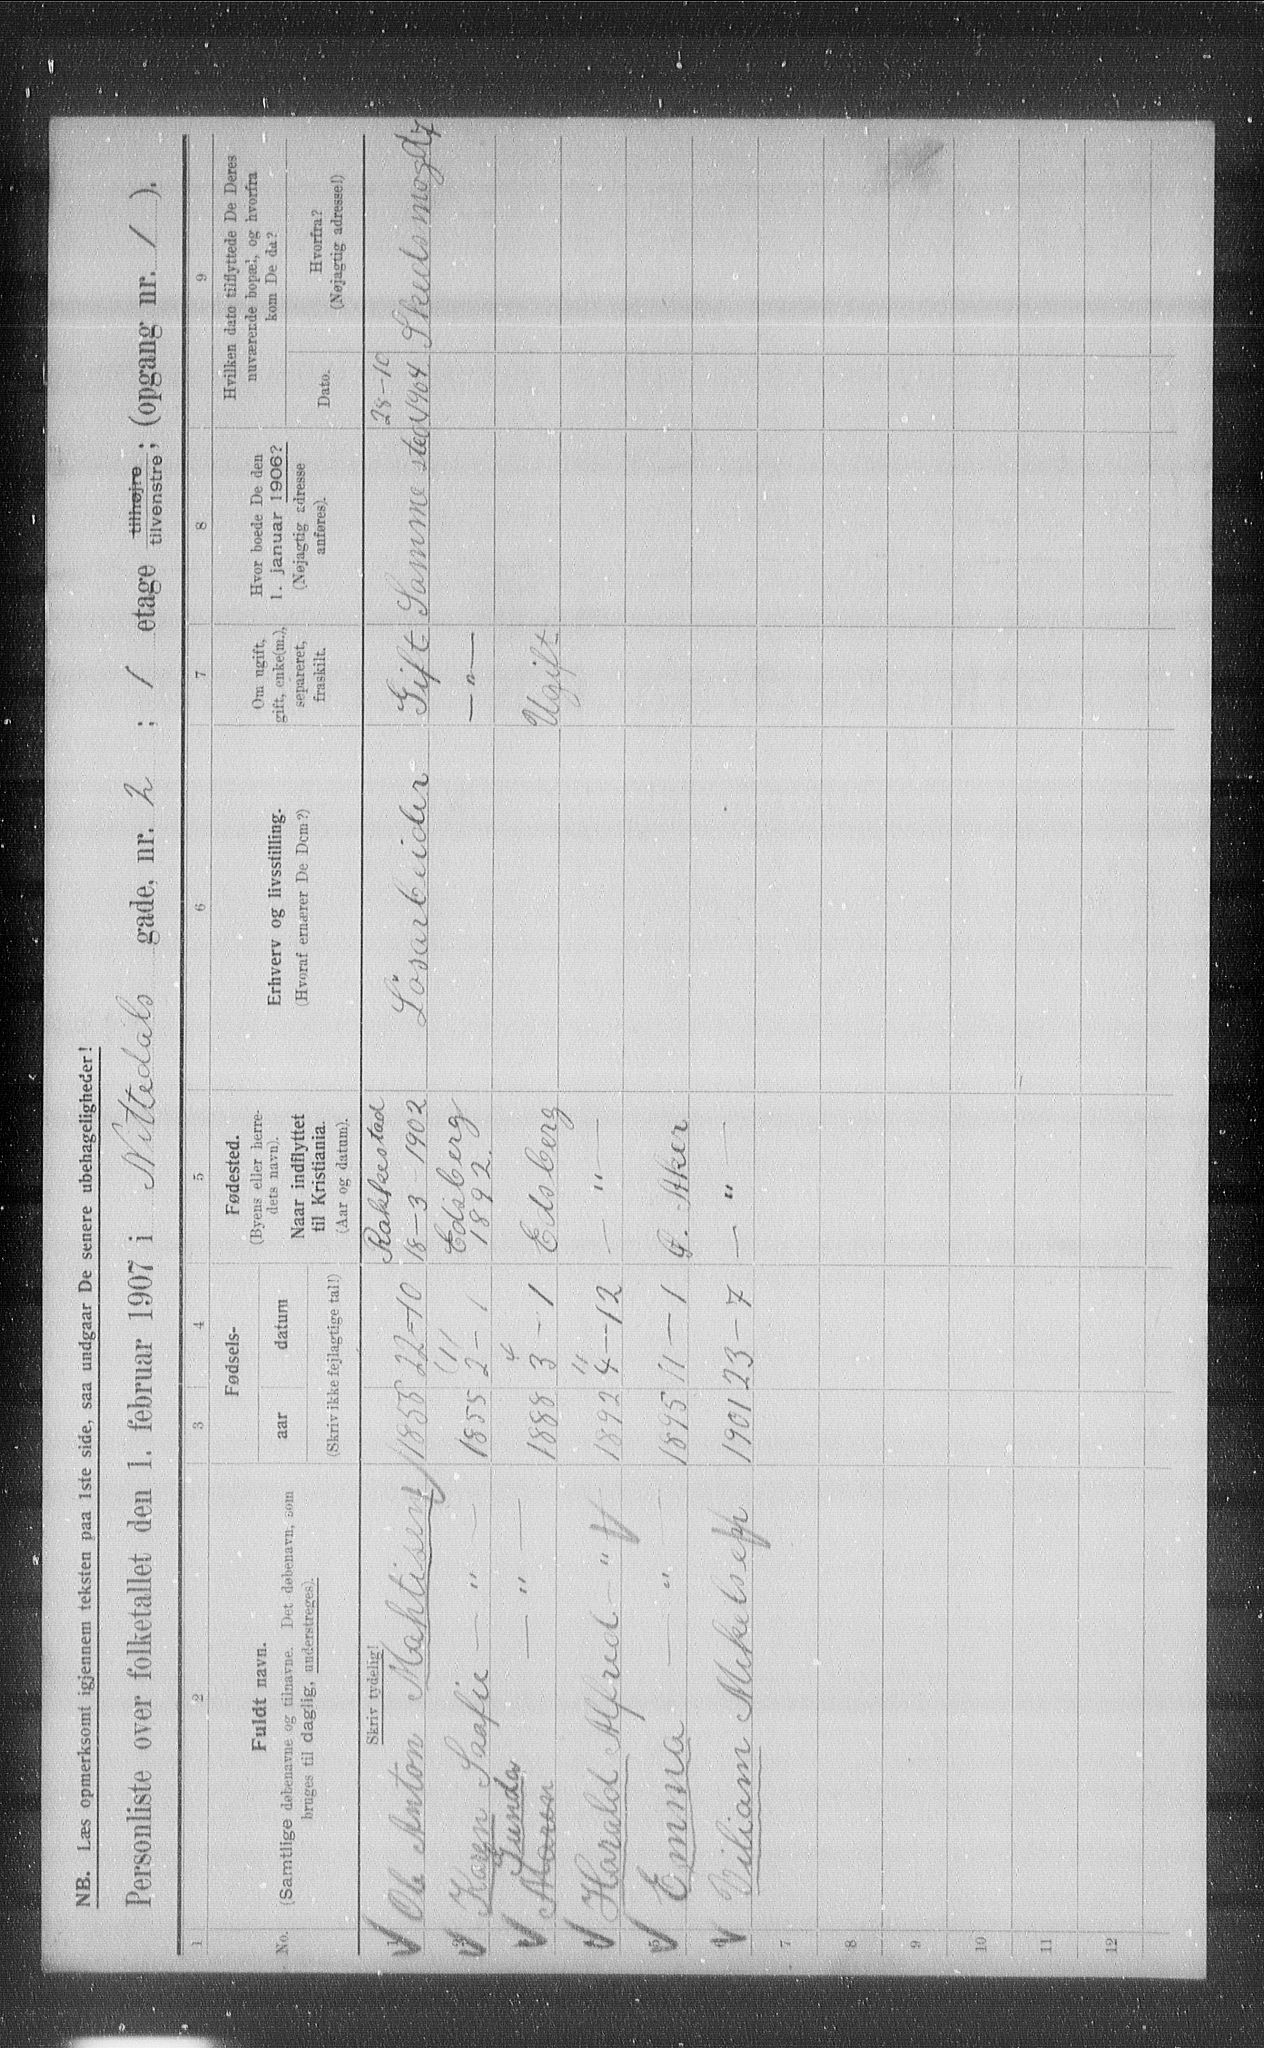 NB. Læs opmerksomt igjennem teksten paa 1ste side, saa undgaar De senere ubehageligheder!
Personliste over folketallet den 1. februar 1907 i Nittedals gade, nr. 2 ; 1 etage tilhøjre tilvenstre; (opgang nr. 1 ).
1 2 3 4 5 6 7 8 9
No.
Fuldt navn.
(Samtlige døbenavne og tilnavne. Det døbenavn, som
bruges til daglig, understreges).
Fødsels-
aar datum
(Skriv ikke fejlagtige tal!)
Fødested.
(Byens eller herre-
dets navn).
Naar indflyttet
til Kristiania.
(Aar og datum).
Erhverv og livsstilling.
(Hvoraf ernærer De Dem?)
Om ugift,
gift, enke(m.),
separeret,
fraskilt.
Hvor boede De den
1. januar 1906?
(Nøjagtig adresse
anføres).
Hvilken dato tilflyttede De Deres
nuværende bopæl, og hvorfra
kom De da?
Dato.
Hvorfra?
(Nøjagtig adresse!)
Skriv tydelig!
Rakkestad 28-10
1 Ole Anton 1855 22-10 18-3-1902 Lösarbeider Gift Samme sted 1904
2 Karen 1855 2-1 Edsberg 1892. —"—
Gunda
3 Maren —"— 1888 3-1 Edsberg Ugift
4 Harald Alfred —"— 1892 4-12 —"—
5 Emma —"— 1895 11-1 Ø. Aker
6 Viliam 1901 23-7 —"—
7
8
9
10
11
12